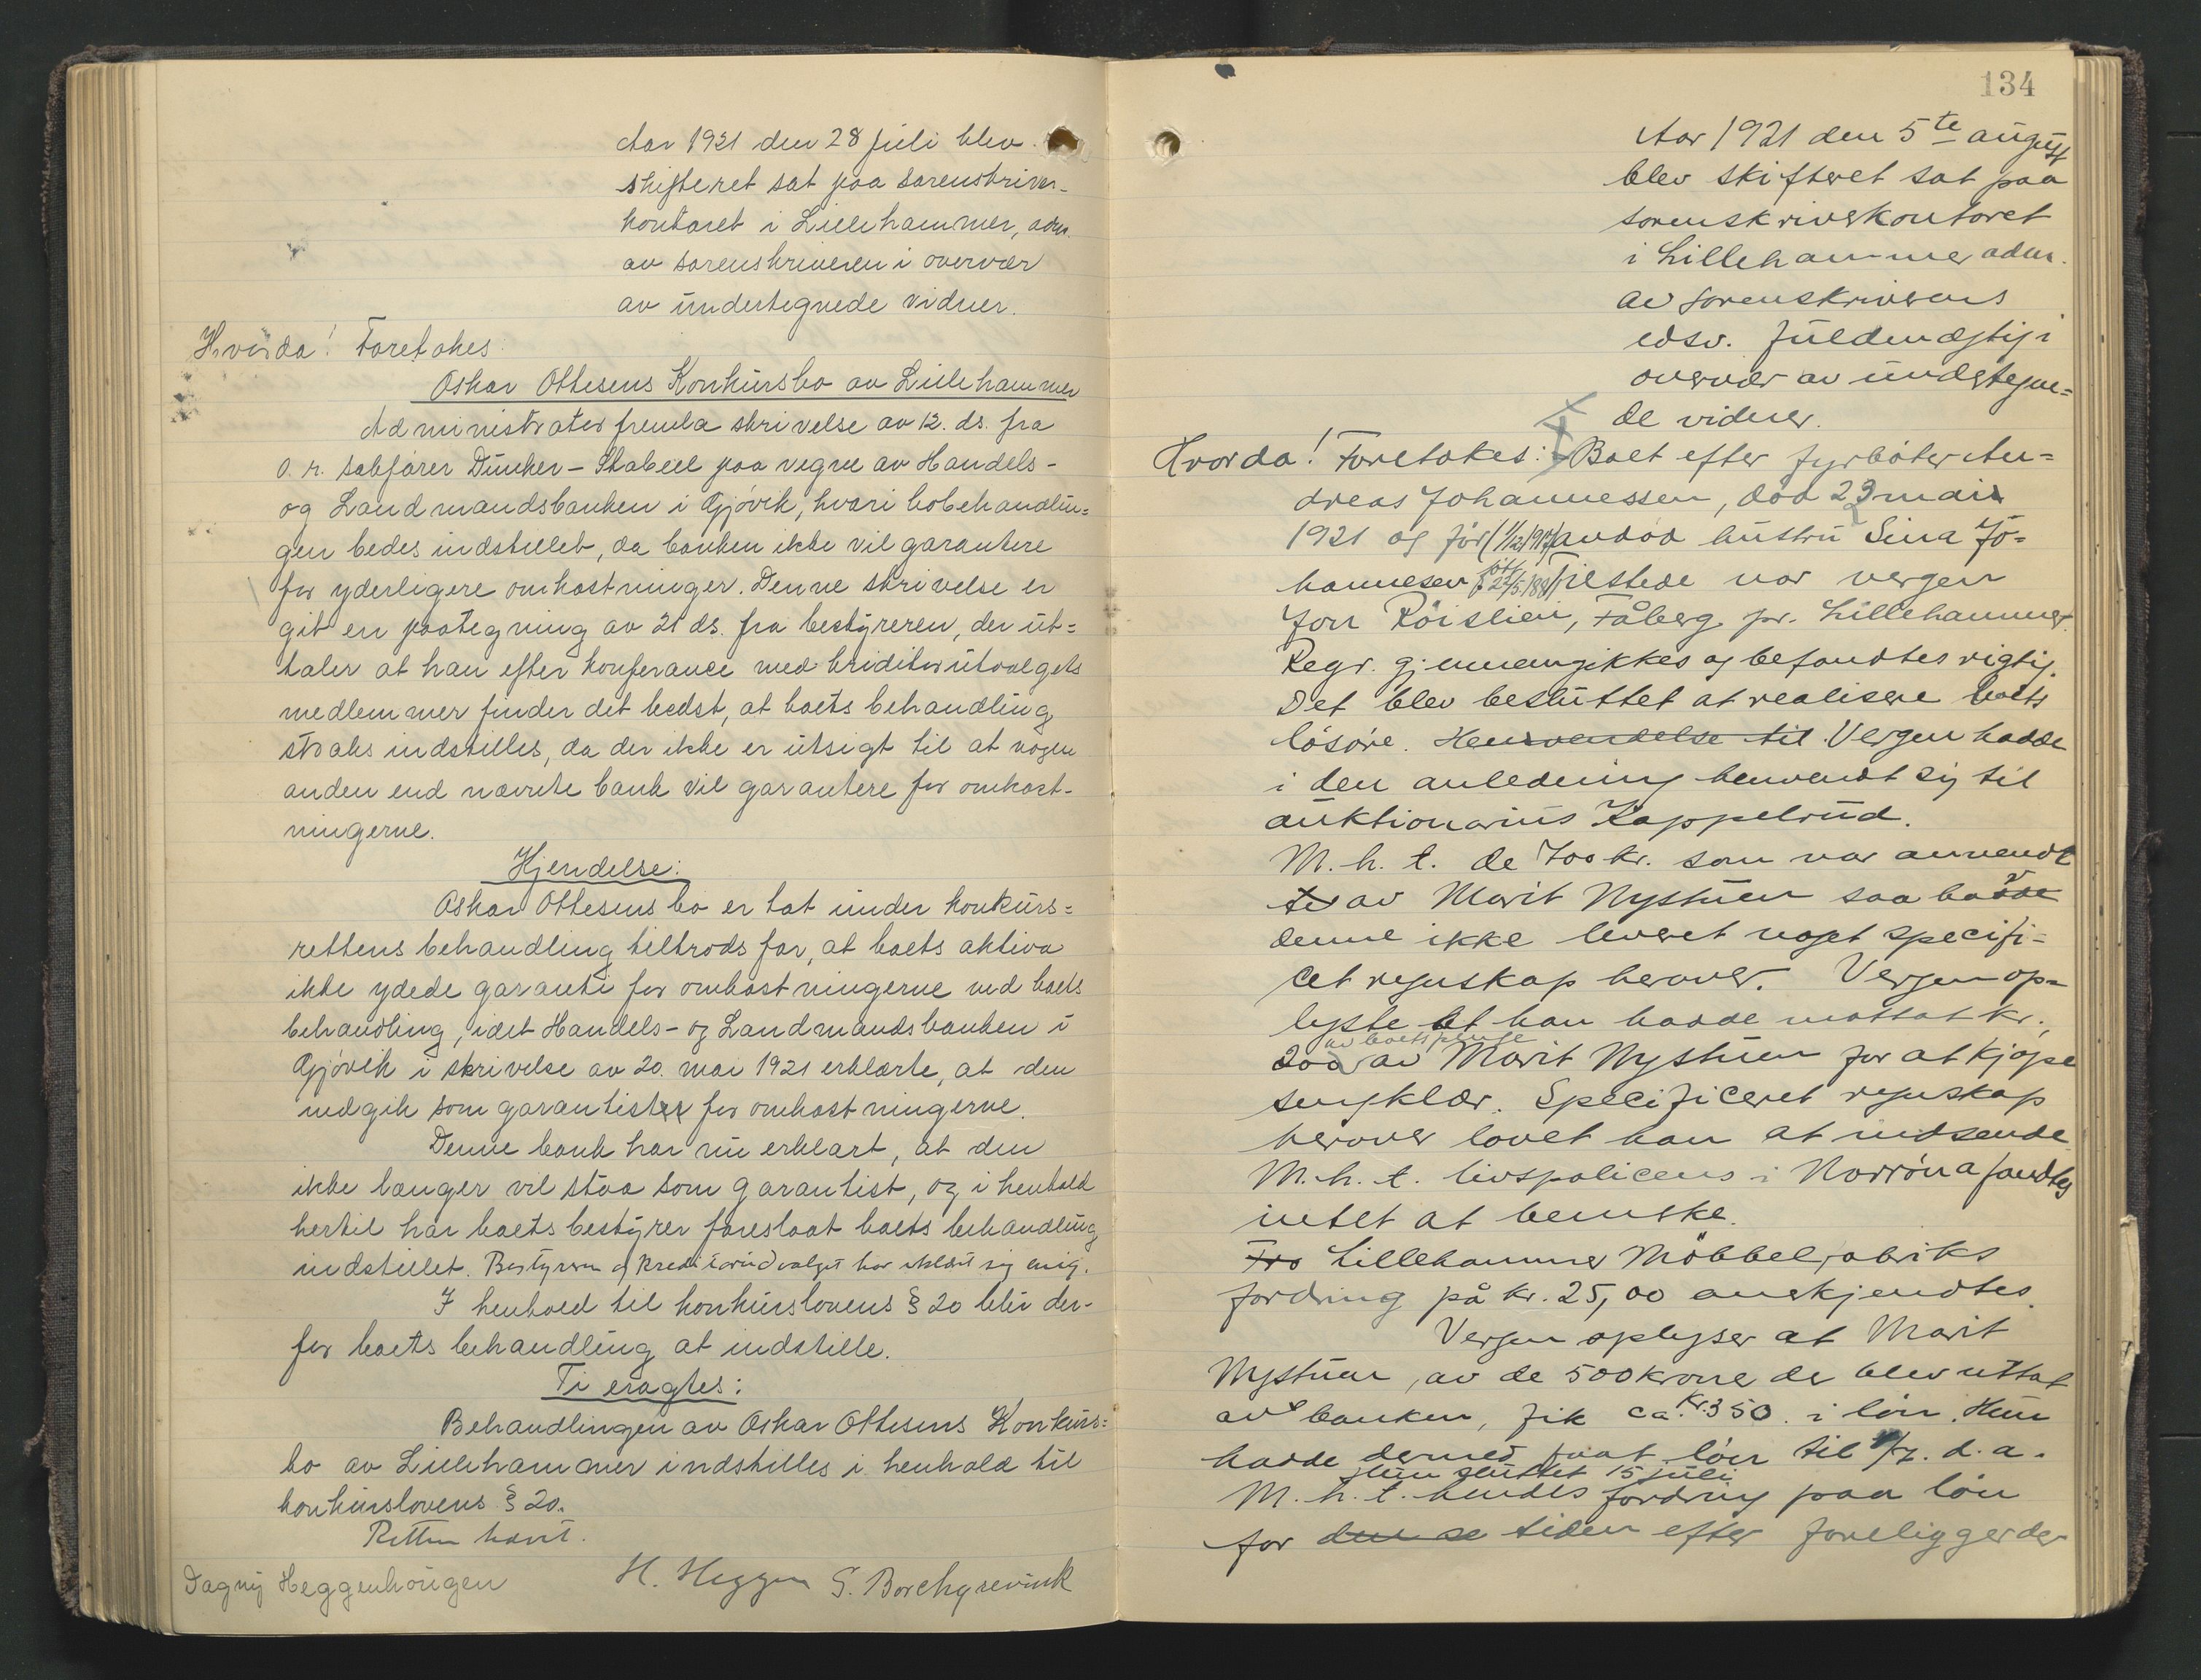 Aar 1921 den 28 juli blev
skifteret sat paa sorenskriver-
kontoret i Lillehammer, adm.
av sorenskriveren i overvær
av undertegnede vidner.
Hvorda! Foretokes:
Oskar Ottesens Konkursbo av Lillehammer
Administrator fremla skrivelse av 12. ds. fra
o. r. sakfører Duncker-Stabell paa vegne av Handels-
og Landmandsbanken i Gjøvik, hvori bobehandlin=
gen bedes indstillet, da banken ikke vil garantere
for yderligere omkostninger. Denne skrivelse er
git en paategning av 21 ds. fra bestyreren, der ut=
taler at han efter konferance med kreditorutvalgets
medlemmer finder det bedst, at boets behandling
straks indstilles, da der ikke er utsigt til at nogen
anden end nævnte bank vil garantere for omkost-
ningerne.
Kjendelse:
Oskar Ottesens bo er tat under konkurs=
rettens behandling tiltrods for, at boets aktiva
ikke ydede garanti for omkostningerne ved boets
behandling, idet Handels- og Landmandsbanken i
Gjøvik i skrivelse av 20. mai 1921 erklærte, at den
indgik som garantister for omkostningerne.
Denne bank har nu erklært, at den
ikke længer vil staa som garantist, og i henhold
hertil har boets bestyrer foreslaat boets behandling
indstillet. Bestyreren og kreditorudvalget har erklært sig enig.
I henhold til konkurslovens § 20 blir der-
for boets behandling at indstille.
Ti eragtes:
Behandlingen av Oskar Ottesens Konkurs=
bo av Lillehammer indstilles i henhold til
konkurslovens § 20.
Retten hævet.
Dagny Heggenhougen H. Heggen S. Borchgrevink
134
Aar 1921 den 5te august
blev skifteret sat paa
sorenskriverkontoret
i Lillehammer adm.
av sorenskriverens
edsv. fuldmægtig i
overvær av undertegne=
de vidner.
Hvorda! Foretokes: Boet efter fyrbøter An=
dreas Johannessen, død 23 mai
1921 og før (1/12 1917) avdød hustru Lina Jo=
hannesen født 27/5 1881 Tilstede var vergen
Jon Røislien, Fåberg pr. Lillehammer.
Regr. gjennemgikkes og befandtes rigtig.
Det blev besluttet at realisere boets
løsøre. Henvendelse til Vergen hadde
i den anledning henvendt sig til
auktionarius Kappelrud.
M. h. t. de 700 kr. som var anvendt
av Marit Nystuen saa hadde
denne ikke leveret noget specifi=
cet regnskap herover. Vergen op=
lyste at han hadde mottat kr.
200 av boets penge av Marit Nystuen for at kjøpe
sengklær. Specificeret regnskap
herover lovet han at indsende
M. h. t. livspolicens i Norrøna fandtes
intet at bemerke.
Fra Lillehammer Møbbelfabriks
fordring på kr. 25,00 anerkjendtes.
Vergen oplyser at Marit
Nystuen, av de 500 krone der blev uttat
av banken, fik ca. kr. 350. i løn. Hun
hadde dermed faat løn til 1/7. d. a.
Hun sluttet 15 juli
M. h. t. hendes fordring paa løn
for den se tiden efter foreligger der